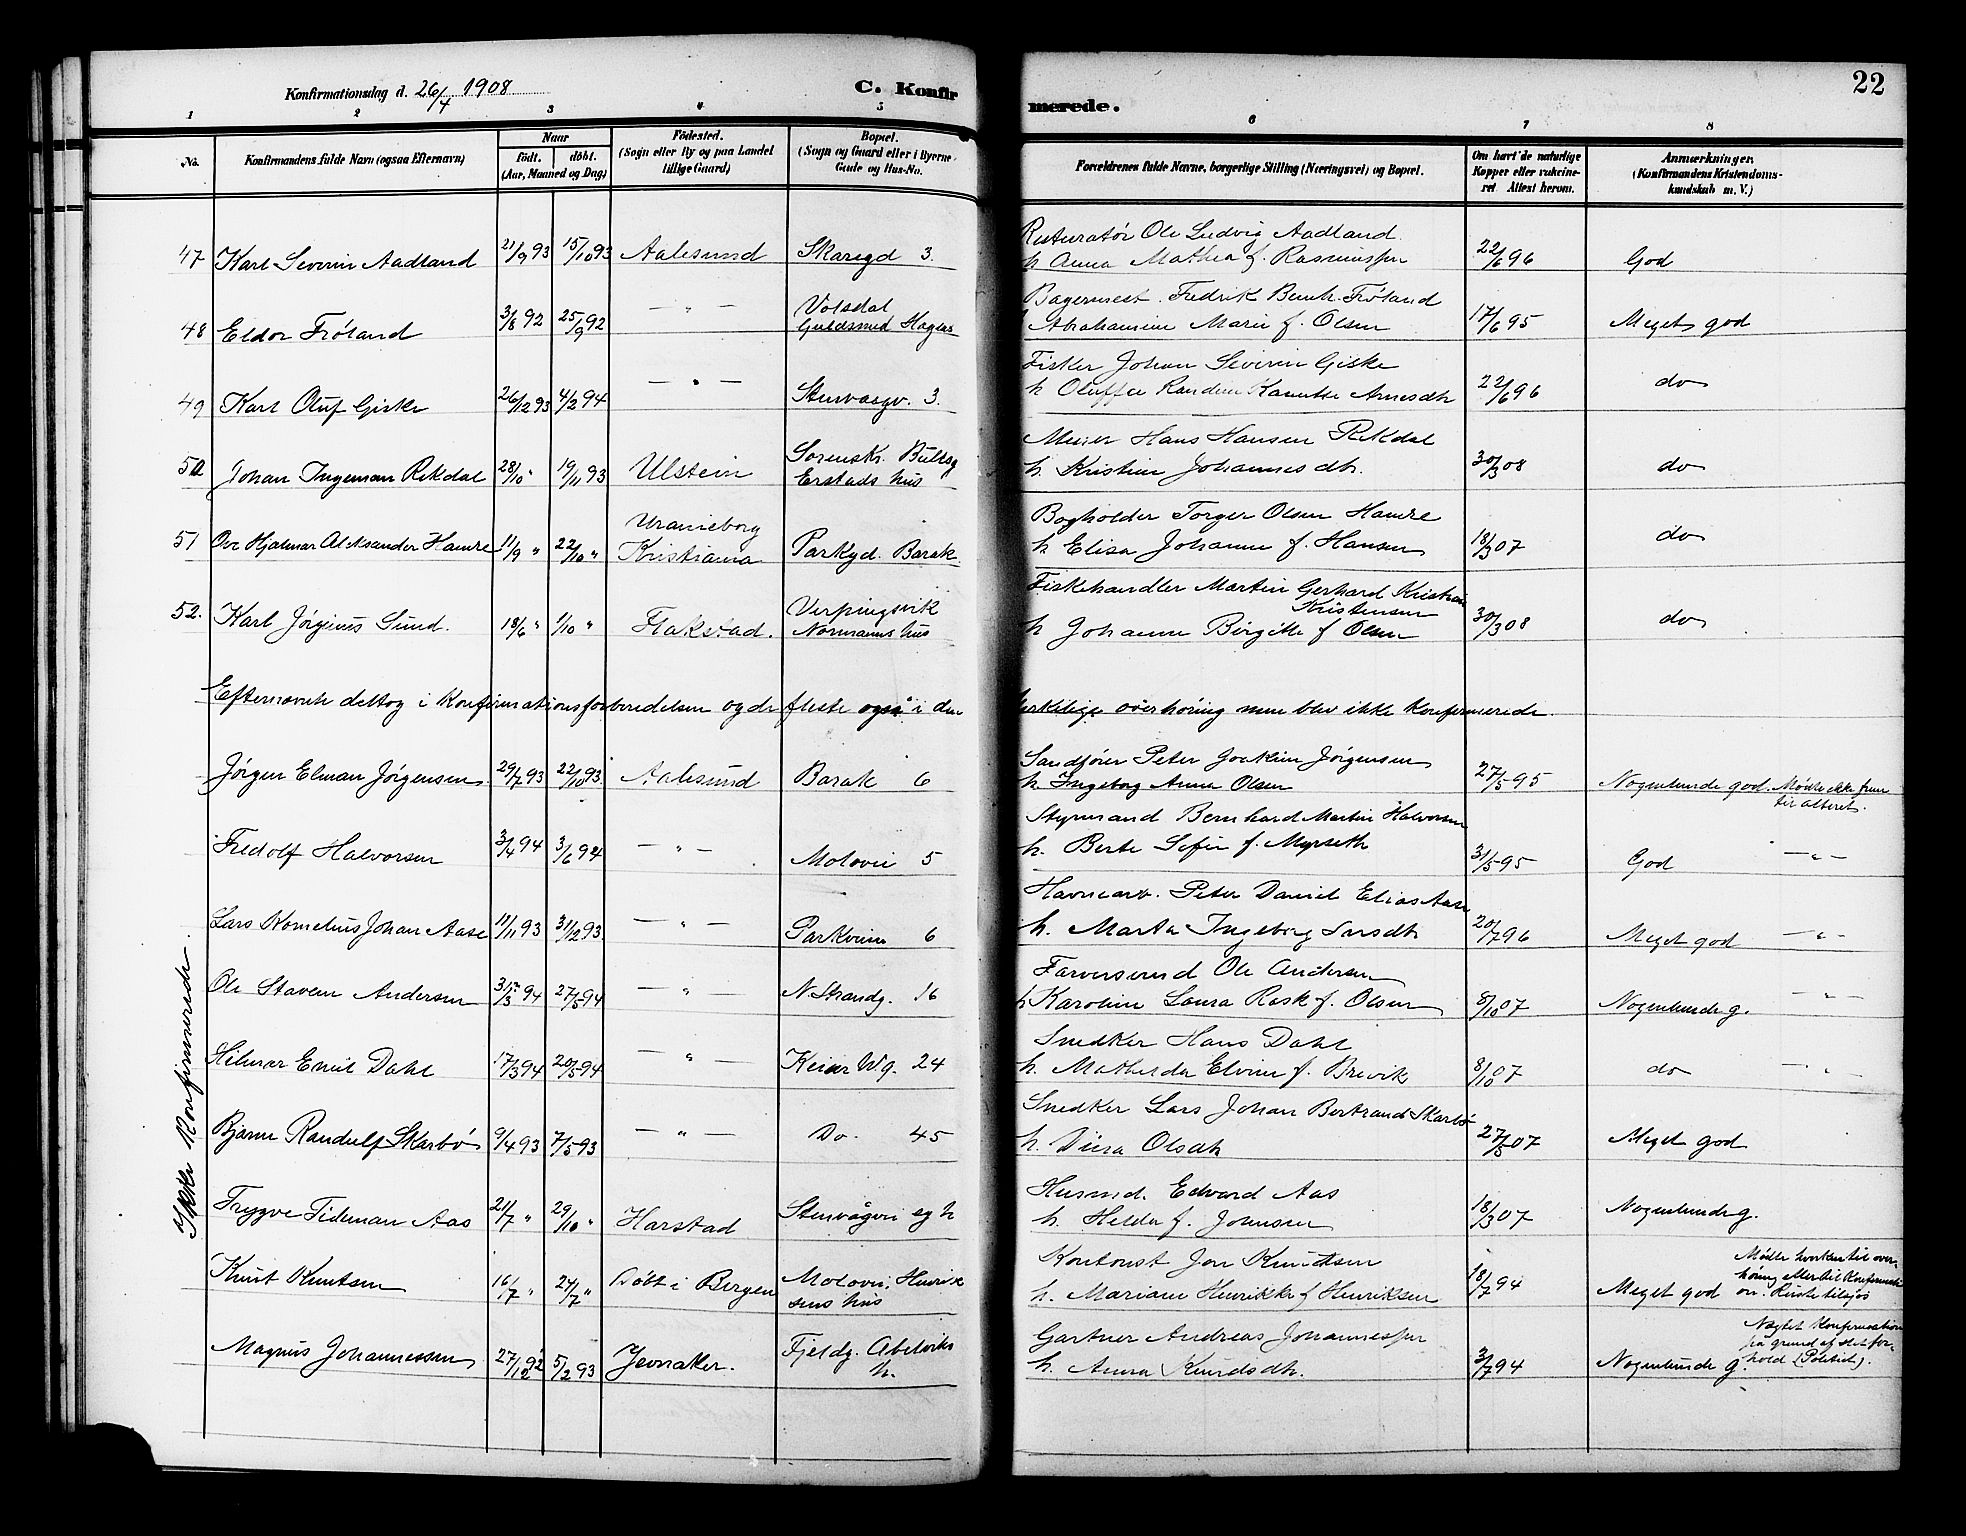 Konfirmationsdag d. 26/4 1908
C. Konfir
merede.
22
1 2 3 4 5 6 7 8
No. Konfirmandens fulde Navn (ogsaa Efternavn) Naar født. døbt. (Aar, Maaned og Dag) Fødested. (Sogn eller By og paa Landet tillige Gaard) Bopæl. (Sogn og Gaard eller i Byerne Gade og Hus-No. Forældrenes fulde Navne, borgerlige Stilling (Næringsvei) og Bopæl. Om havt de naturlige Kopper eller vakcineret Attest herom. Anmærkninger. (Konfirmandens Kristendomskundskab m. V.)
Ole Ludvig Aadland
47 Karl Severin Aadland 21/9 93 15/10 93 Aalesund Skaregd 3. h. Anna Mathea f. Rasmussen 22/6 96 God
Volsdal Bagermest. Fredrik Bernh. Frøland
48 Eldor Frøland 3/8 92 25/9 92 — " — Guldsmed Hagens Abrahamine Marie f. Olsen 17/6 95 Meget god
Fisker Johan Severin Giske
49 Karl Oluf Giske 26/12 93 4/2 94 — " — Stenvaagv. 3. h. Oluffa Arnesdtr 22/6 96 do
Sorensk. Bullsg Murer Hans Hansen Rekdal
50 Johan Ingeman Rekdal 28/10 " 19/11 93 Ulstein Erstads hus h. Kristine Johannesdtr. 30/3 08 do
Uranieborg Bogholder Torger Olsen Hamre
51 Ove Hjalmar Aleksander Hamre 11/9 " 22/10 " Kristiania Parkgd. Barak h. Elisa Johanne f. Hansen 18/3 07 do
Fiskehandler Martin Gerhard Kristian
Kristensen
52. Karl Jørginus Sund. 18/6 " 1/10 " Flakstad. Normanns hus h Johanne Birgitte f Olsen 30/3 08 do
Efternævnte deltog i Konfirmationsforberedelsen og de fleste også i den kirkelige overhøring men blev ikke konfirmerede.
Ikke Konfirmerede
Peter Joakim Jørgensen
Jørgen Elman Jørgensen 29/7 93 22/10 93. Aalesund Barak 6 h. Ingeborg Anna Olsen 27/5 95 Nogenlunde god. Mødte ikke frem
til alteret.
Styrmand Bernhard Martin Halvorsen
Fredolf Halvorsen 3/4 94 3/6 94 — " — Molovei 5 h. Berte Sofie f. Myrseth 31/5 95 God — " —
Havnearb. Peter Daniel Elias Aase
Lars Kornelius Johan Aase 11/11 93 31/12 93. — " — Parkveien 6 h. Marta Ingeborg Larsdtr 20/7 96 Meget god — " —
Farversvend Ole Andersen
Ole Stavem Andersen 31/3 94 27/5 94 — " — N. Strandg. 16 h Karoline Laura Rask f. Olsen 8/10 07 Nogenlunde g. — " —
Snedker Hans Dahl
Hilmar Emil Dahl 17/3 94 20/5 94 — " — Keiser Wg. 24 h. Mathilda Elvine f. Brevik 8/10 07 do — " —
Snedker Lars Johan Bertrand Skarbø
Bjarne Randulf Skarbø 9/4 93 7/5 93 — " — Do. 45 h. Olsdtr 27/5 07 Meget god
Husmd. Edvard Aas
Trygve Tideman Aas 21/7 " 29/10 " Harstad Stenvågvei eg h h. Helda f. Johnsen 18/3 07 Nogenlunde g.
Kontorist Jon Knudtsen Mødte hverken til over-
Knut Knutsen 16/7 " 24/7 " Døbt i Bergen Molovei, Henrik høring eller til Konfirmati
sens hus h. Mariane Henrikke f Henriksen 18/7 94 Meget god on. Reiste tilsjøs
Gartner Andreas Johannessen Nægtet Konfirmation
Magnus Johannessen 27/12 92 5/2 93 Jevnaker. Fjeldg. Abelviks på grund af slet for-
h. h. Anna Knudsdtr. 3/7 94 Nogenlunde g. hold (Politiet).